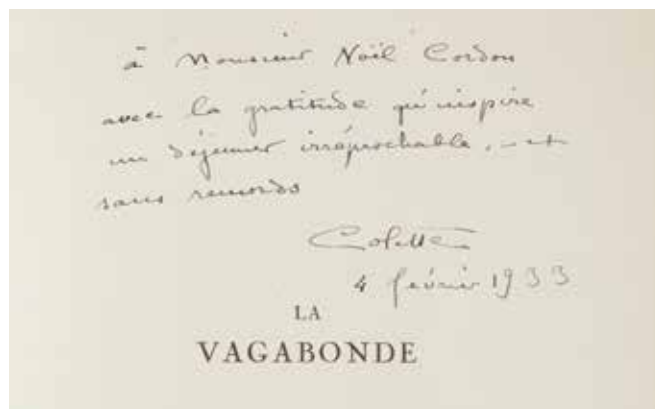 à Monsieur Noël Cordon
avec la gratitude qu'inspire
un déjeuner irréprochable, — et
sans remords
Colette
4 février 1933
LA
VAGABONDE